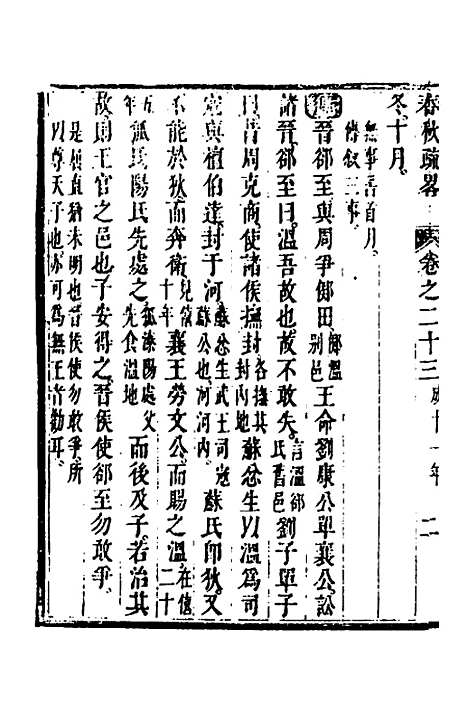 春秋疏畧 卷之二十三 成十一年 二
冬十月。
無事書首月。
傳叙三事。
傳 晉郤至與周爭鄇田鄇溫別邑王命劉康公單襄公訟
諸晉郤至曰溫吾故也故不敢失言溫郤氏舊邑劉子單子
曰昔周克商使諸侯撫封各撫其封内地蘇忿生以溫爲司
寇與檀伯達封于河蘇忿生武王司寇蘇公也河河内蘇氏卽狄又
不能於狄而奔衛見僖十年襄王勞文公而賜之溫在僖二十
五年狐氏陽氏先處之狐溱陽處父先食溫地而後及子若治其
故則王官之邑也子安得之晉侯使郤至勿敢爭
是直猶未明也晉侯使勿敢爭所
以尊天子也亦可爲無王者勸耳。